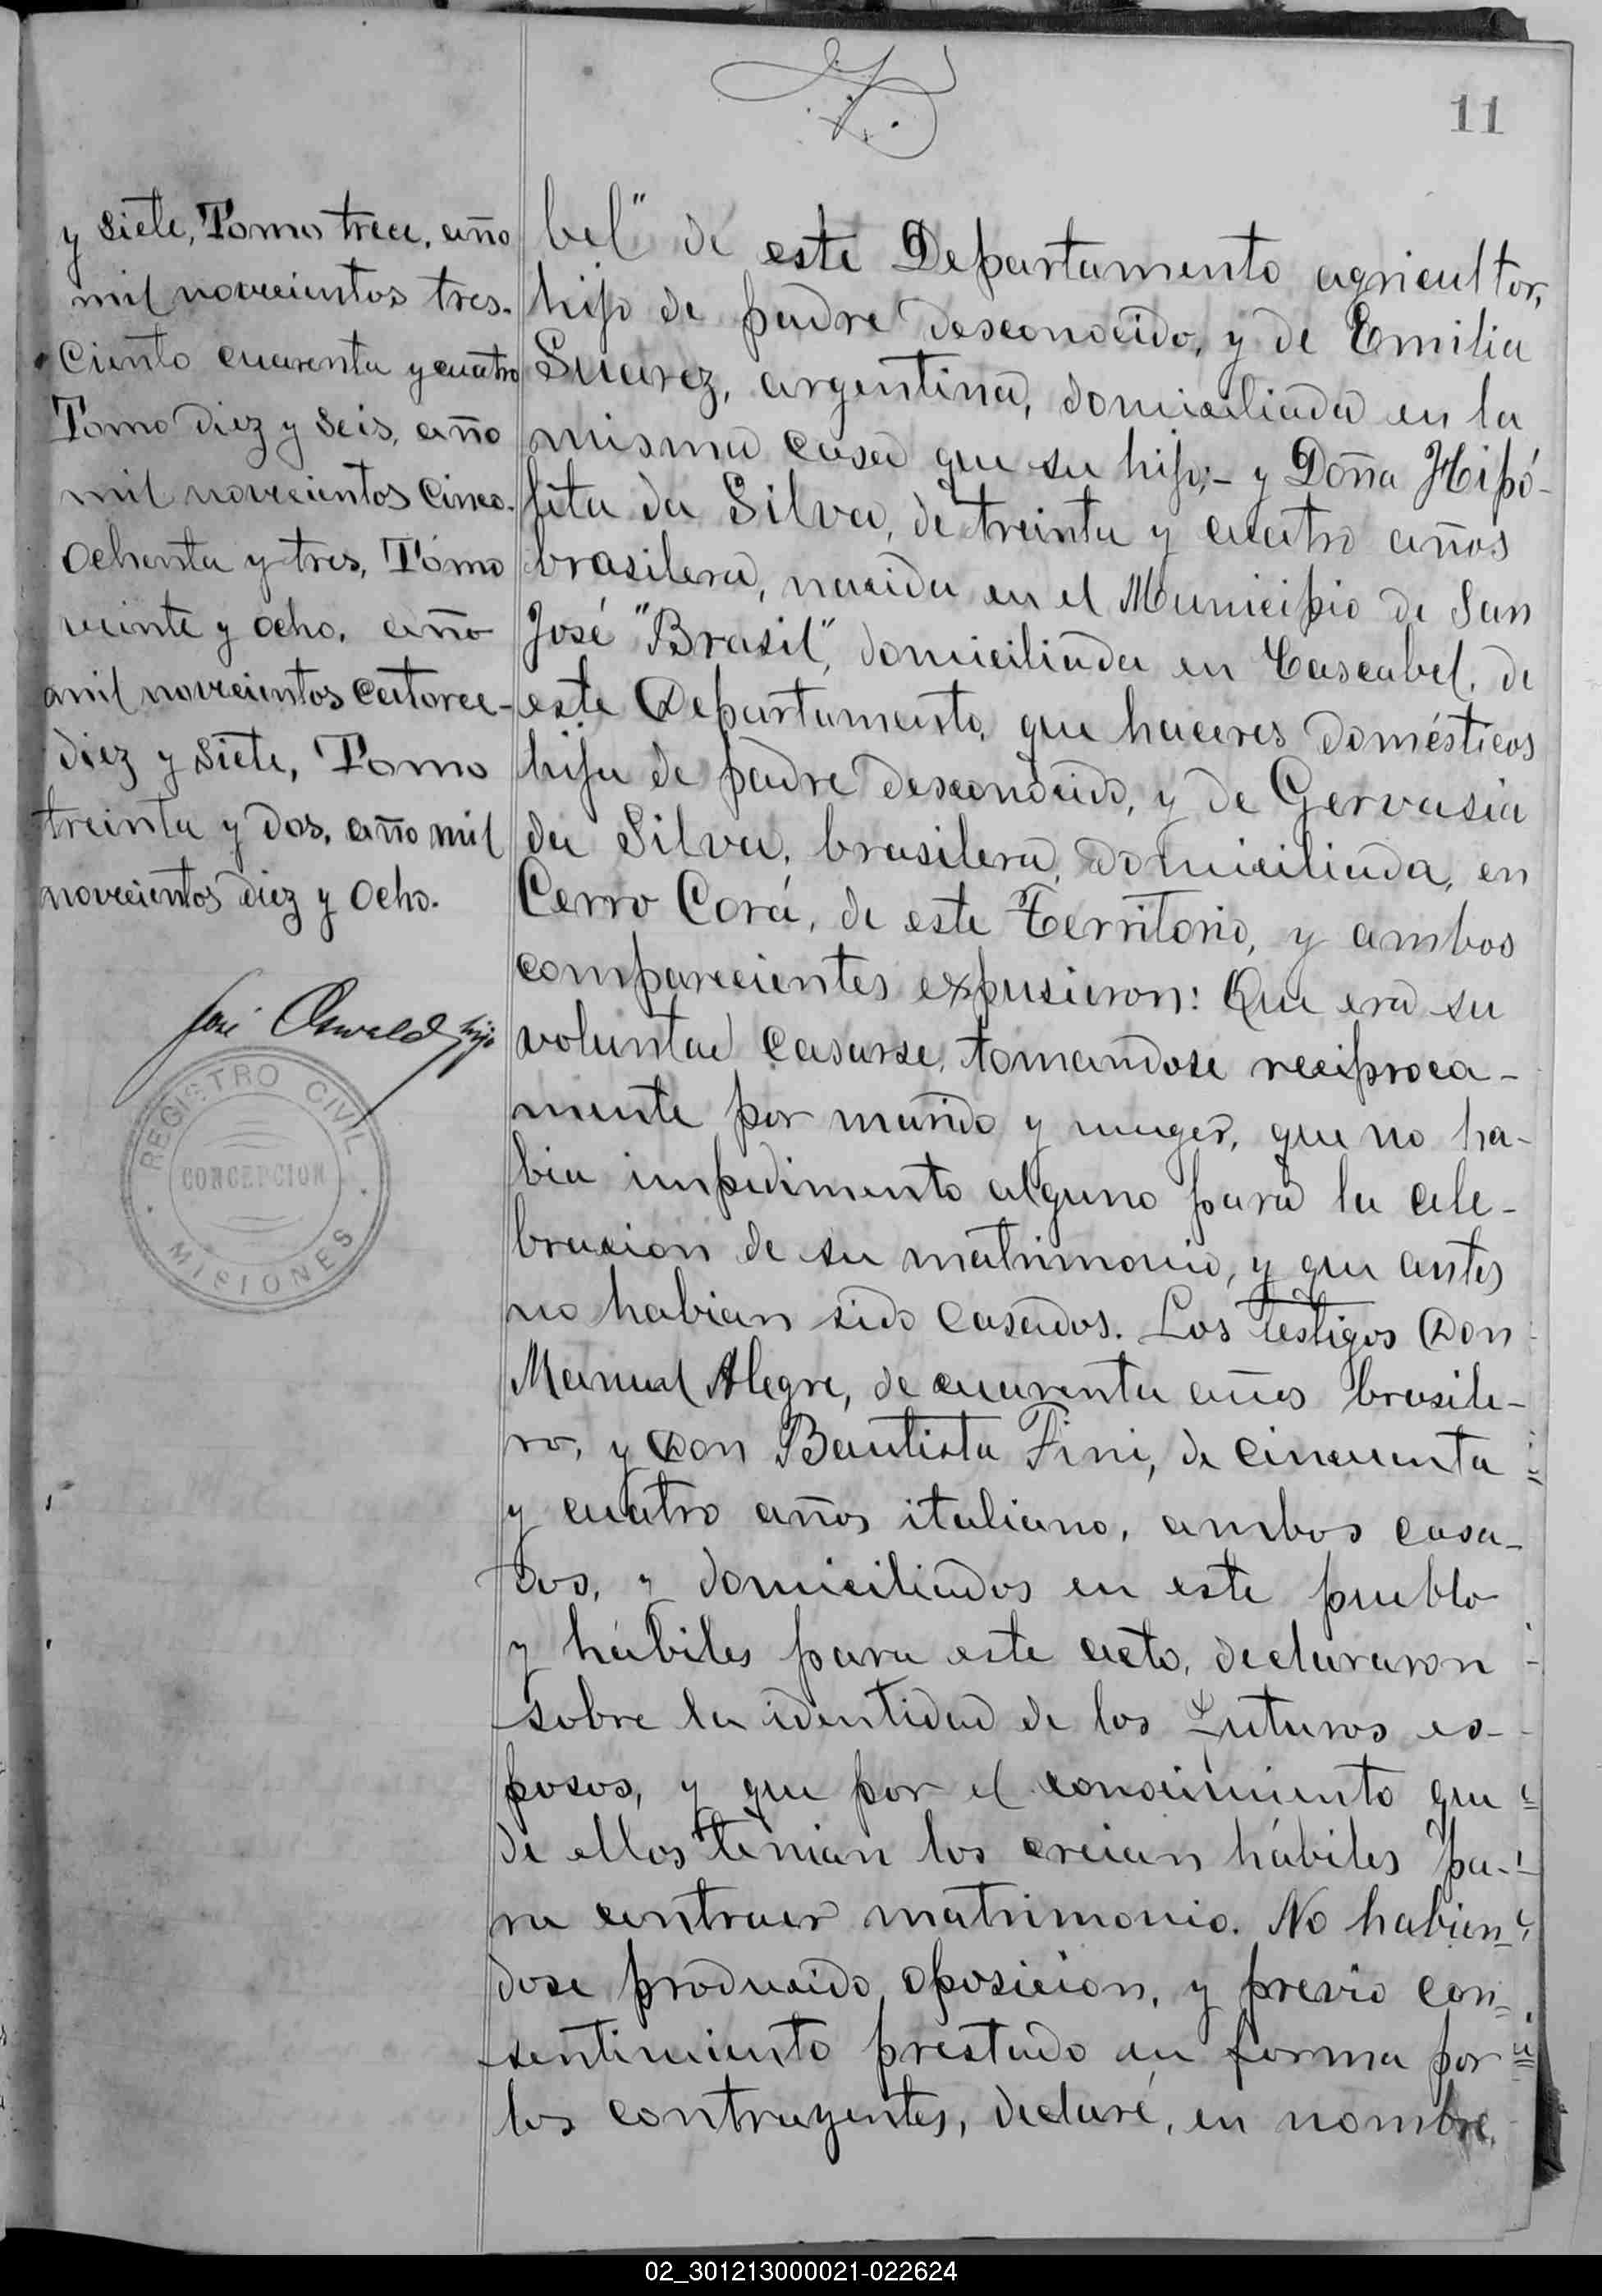 11
y siete, Tomo trece, año
mil novecientos tres.
Ciento cuarenta y cuatro
Tomo diez y seis, año
mil novecientos cinco.
Ochenta y tres, Tomo
veinte y ocho, año
mil novecientos catorce-
diez y siete, Tomo
treinta y dos, año mil
novecientos diez y ocho.
José Oswald hijo
REGISTRO CIVIL
CONCEPCION
MISIONES
bel" de este Departamento agricultor,
hijo de padre desconocido, y de Emilia
Suarez, argentina, domiciliada en la
misma casa que su hijo;- y Doña Hipó-
lita da Silva, de treinta y cuatro años
brasilera, nacida en el Municipio de San
José "Brasil", domiciliada en Cascabel, de
este Departamento, que haceres domésticos
hija de padre desconocido, y de Gervasia
da Silva, brasilera, domiciliada, en
Cerro Corá, de este Territorio, y ambos
comparecientes expusieron: Que era su
voluntad casarse, tomandose reciproca-
mente por marido y muger, que no ha-
bia impedimento alguno para la cele-
bracion de su matrimonio, y que antes
no habian sido casados. Los testigos Don
Manuel Alegre, de cuarenta años brasile-
ro, y Don Bautista Fini, de cincuenta
y cuatro años italiano, ambos casa-
dos, y domiciliados en este pueblo
y hábiles para este acto, declararon
sobre la identidad de los futuros es-
posos, y que por el conocimiento que
de ellos tenian los creian hábiles pa-
ra contraer matrimonio. No habien-
dose producido oposicion, y previo con-
sentimiento prestado en forma por
los contrayentes, declaré, en nombre
02_301213000021-022624